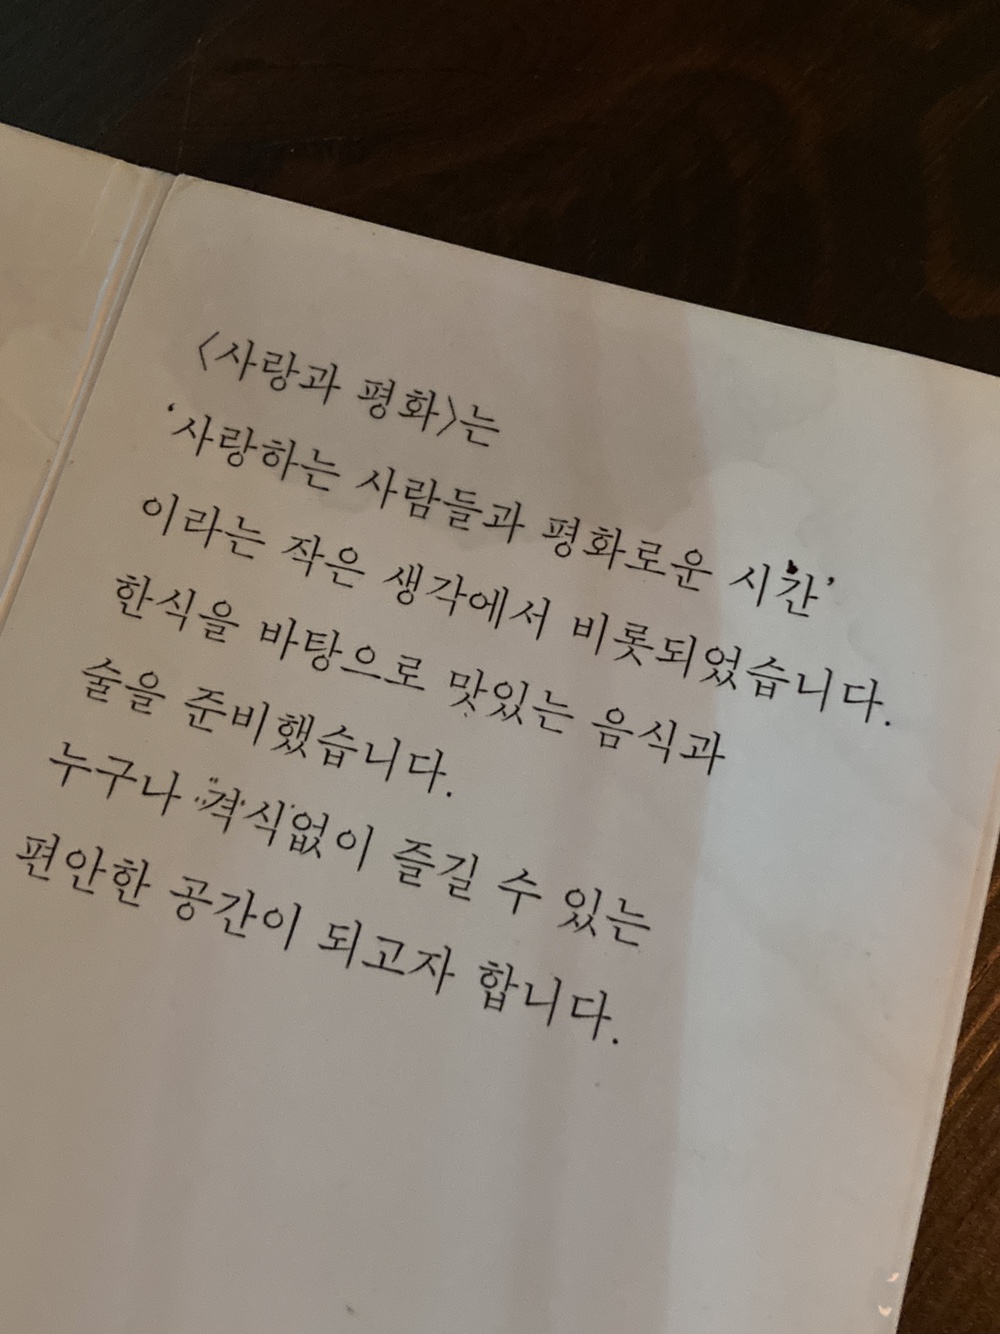 〈사랑과 평화〉는
‘사랑하는 사람들과 평화로운 시간’
이라는 작은 생각에서 비롯되었습니다.
한식을 바탕으로 맛있는 음식과
술을 준비했습니다.
누구나 격식없이 즐길 수 있는
편안한 공간이 되고자 합니다.